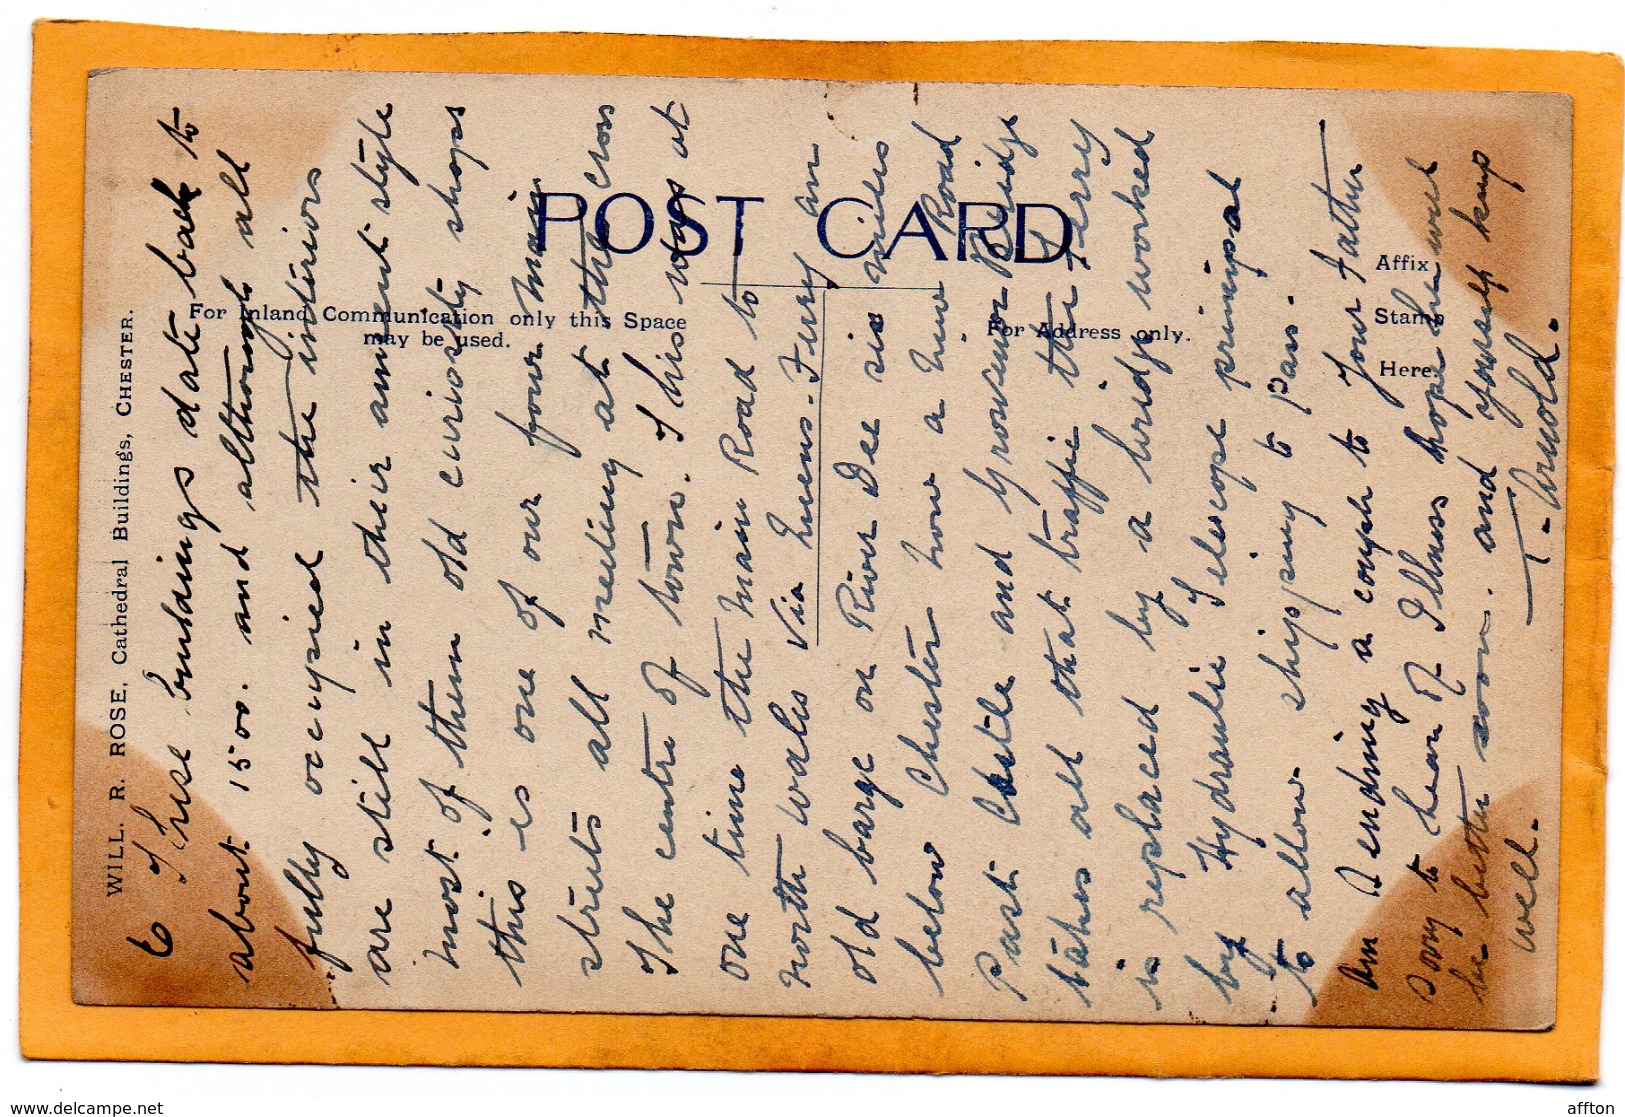 WILL. R. ROSE, Cathedral Buildings, CHESTER.
POST CARD
For Inland Communication only this Space
may be used.
For Address only.
Affix
Stamp
Here.
6
These buildings date back to
about 1500. and although all
fully occupied the interiors
are still in their ancient style
most of them old curiosity shops
this is one of our four main
streets all meeting at the Cross
The centre of town. This was at
one time the main Road to
north Wales Via Queens. Ferry an
old barge on River Dee six miles
below Chester now a new Road
Past Castle and Grosvenor Bridge
takes all that traffic the Ferry
is replaced by a bridge worked
by Hydraulic Telescope principal
to allow shipping to pass.
Am sending a couple to your Father
Sorry to hear of Illness hope he will
be better soon. and yourself keep
well.
T. Arnold.
affton
delcampe.net